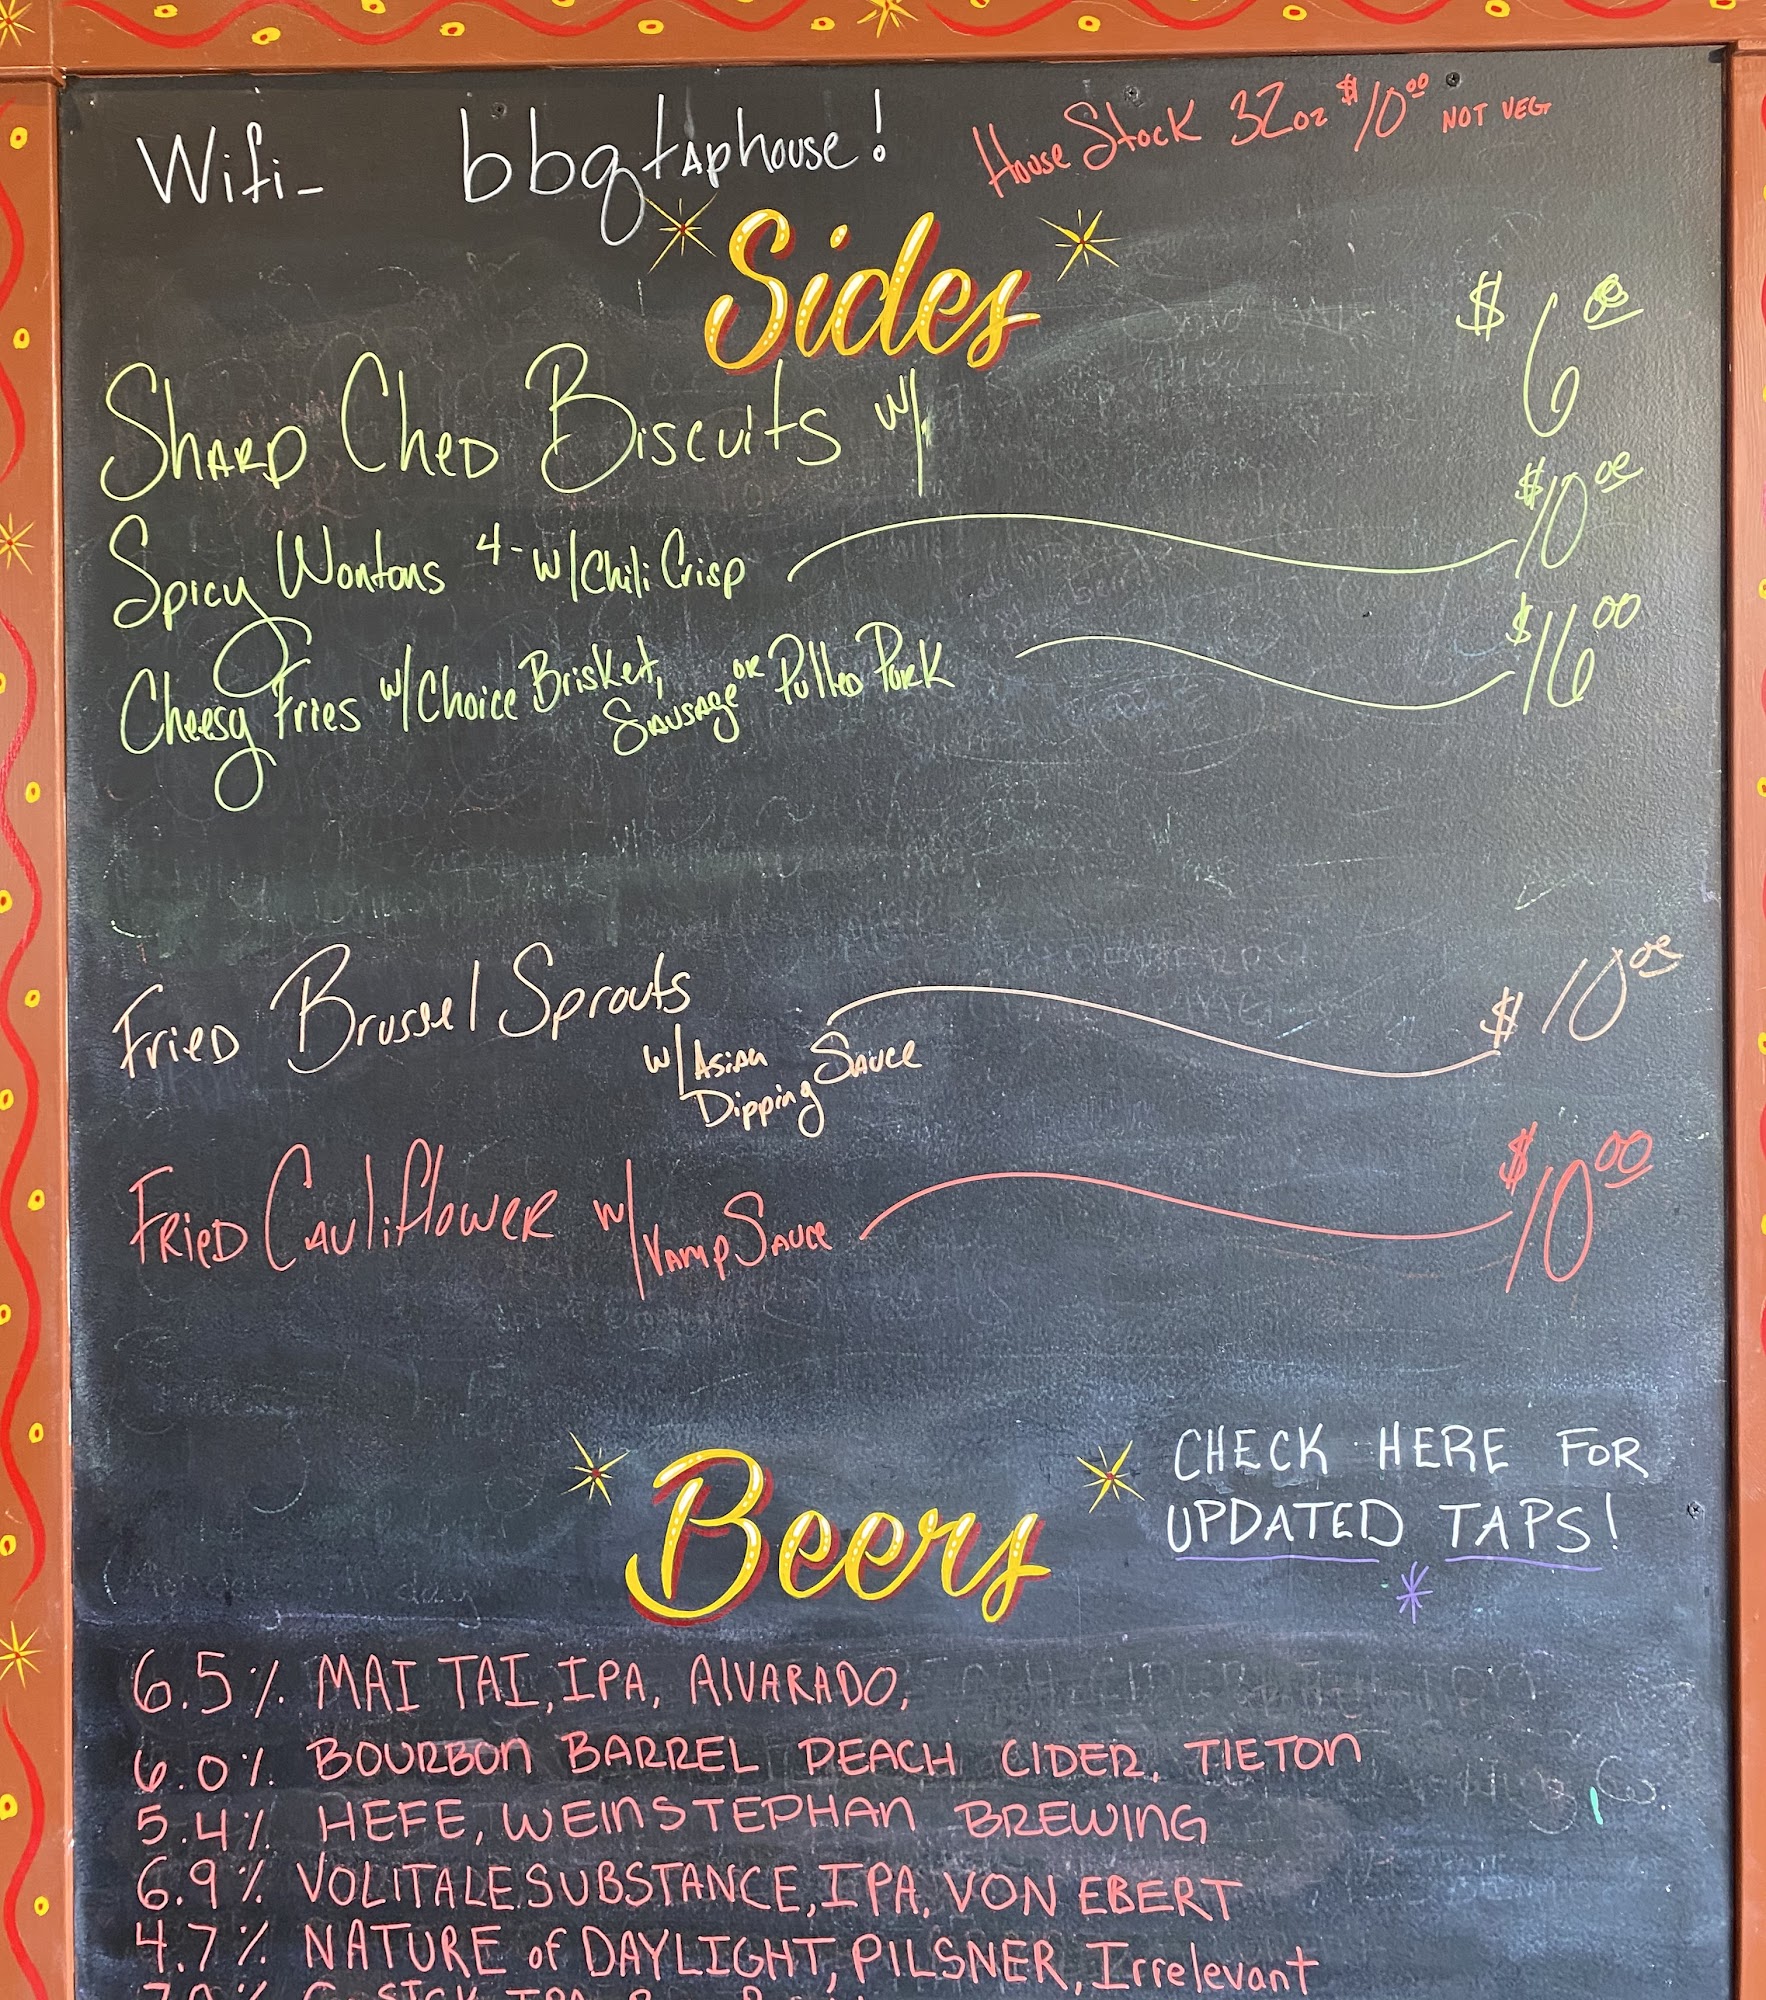 Wifi- bbqtaphouse!
House Stock 32oz $10.00 NOT VEG
Sides
Shard Ched Biscuits w/ $6.00
Spicy Wontons 4- w/Chili Crisp $10.00
Cheesy Fries w/Choice Brisket, Sausage or Pulled Pork $16.00
Fried Brussel Sprouts $10.00
w/Asian Dipping Sauce
Fried Cauliflower w/Vamp Sauce $10.00
Beers
CHECK HERE FOR
UPDATED TAPS!
6.5% MAI TAI, IPA, AlVARADO,
6.0% BOURBON BARREL PEACH CIDER, TIETON
5.4% HEFE, WEINSTEPHAN BREWING
6.9% VOLITALE SUBSTANCE, IPA, VON EBERT
4.7% NATURE of DAYLIGHT, PILSNER, Irrelevant